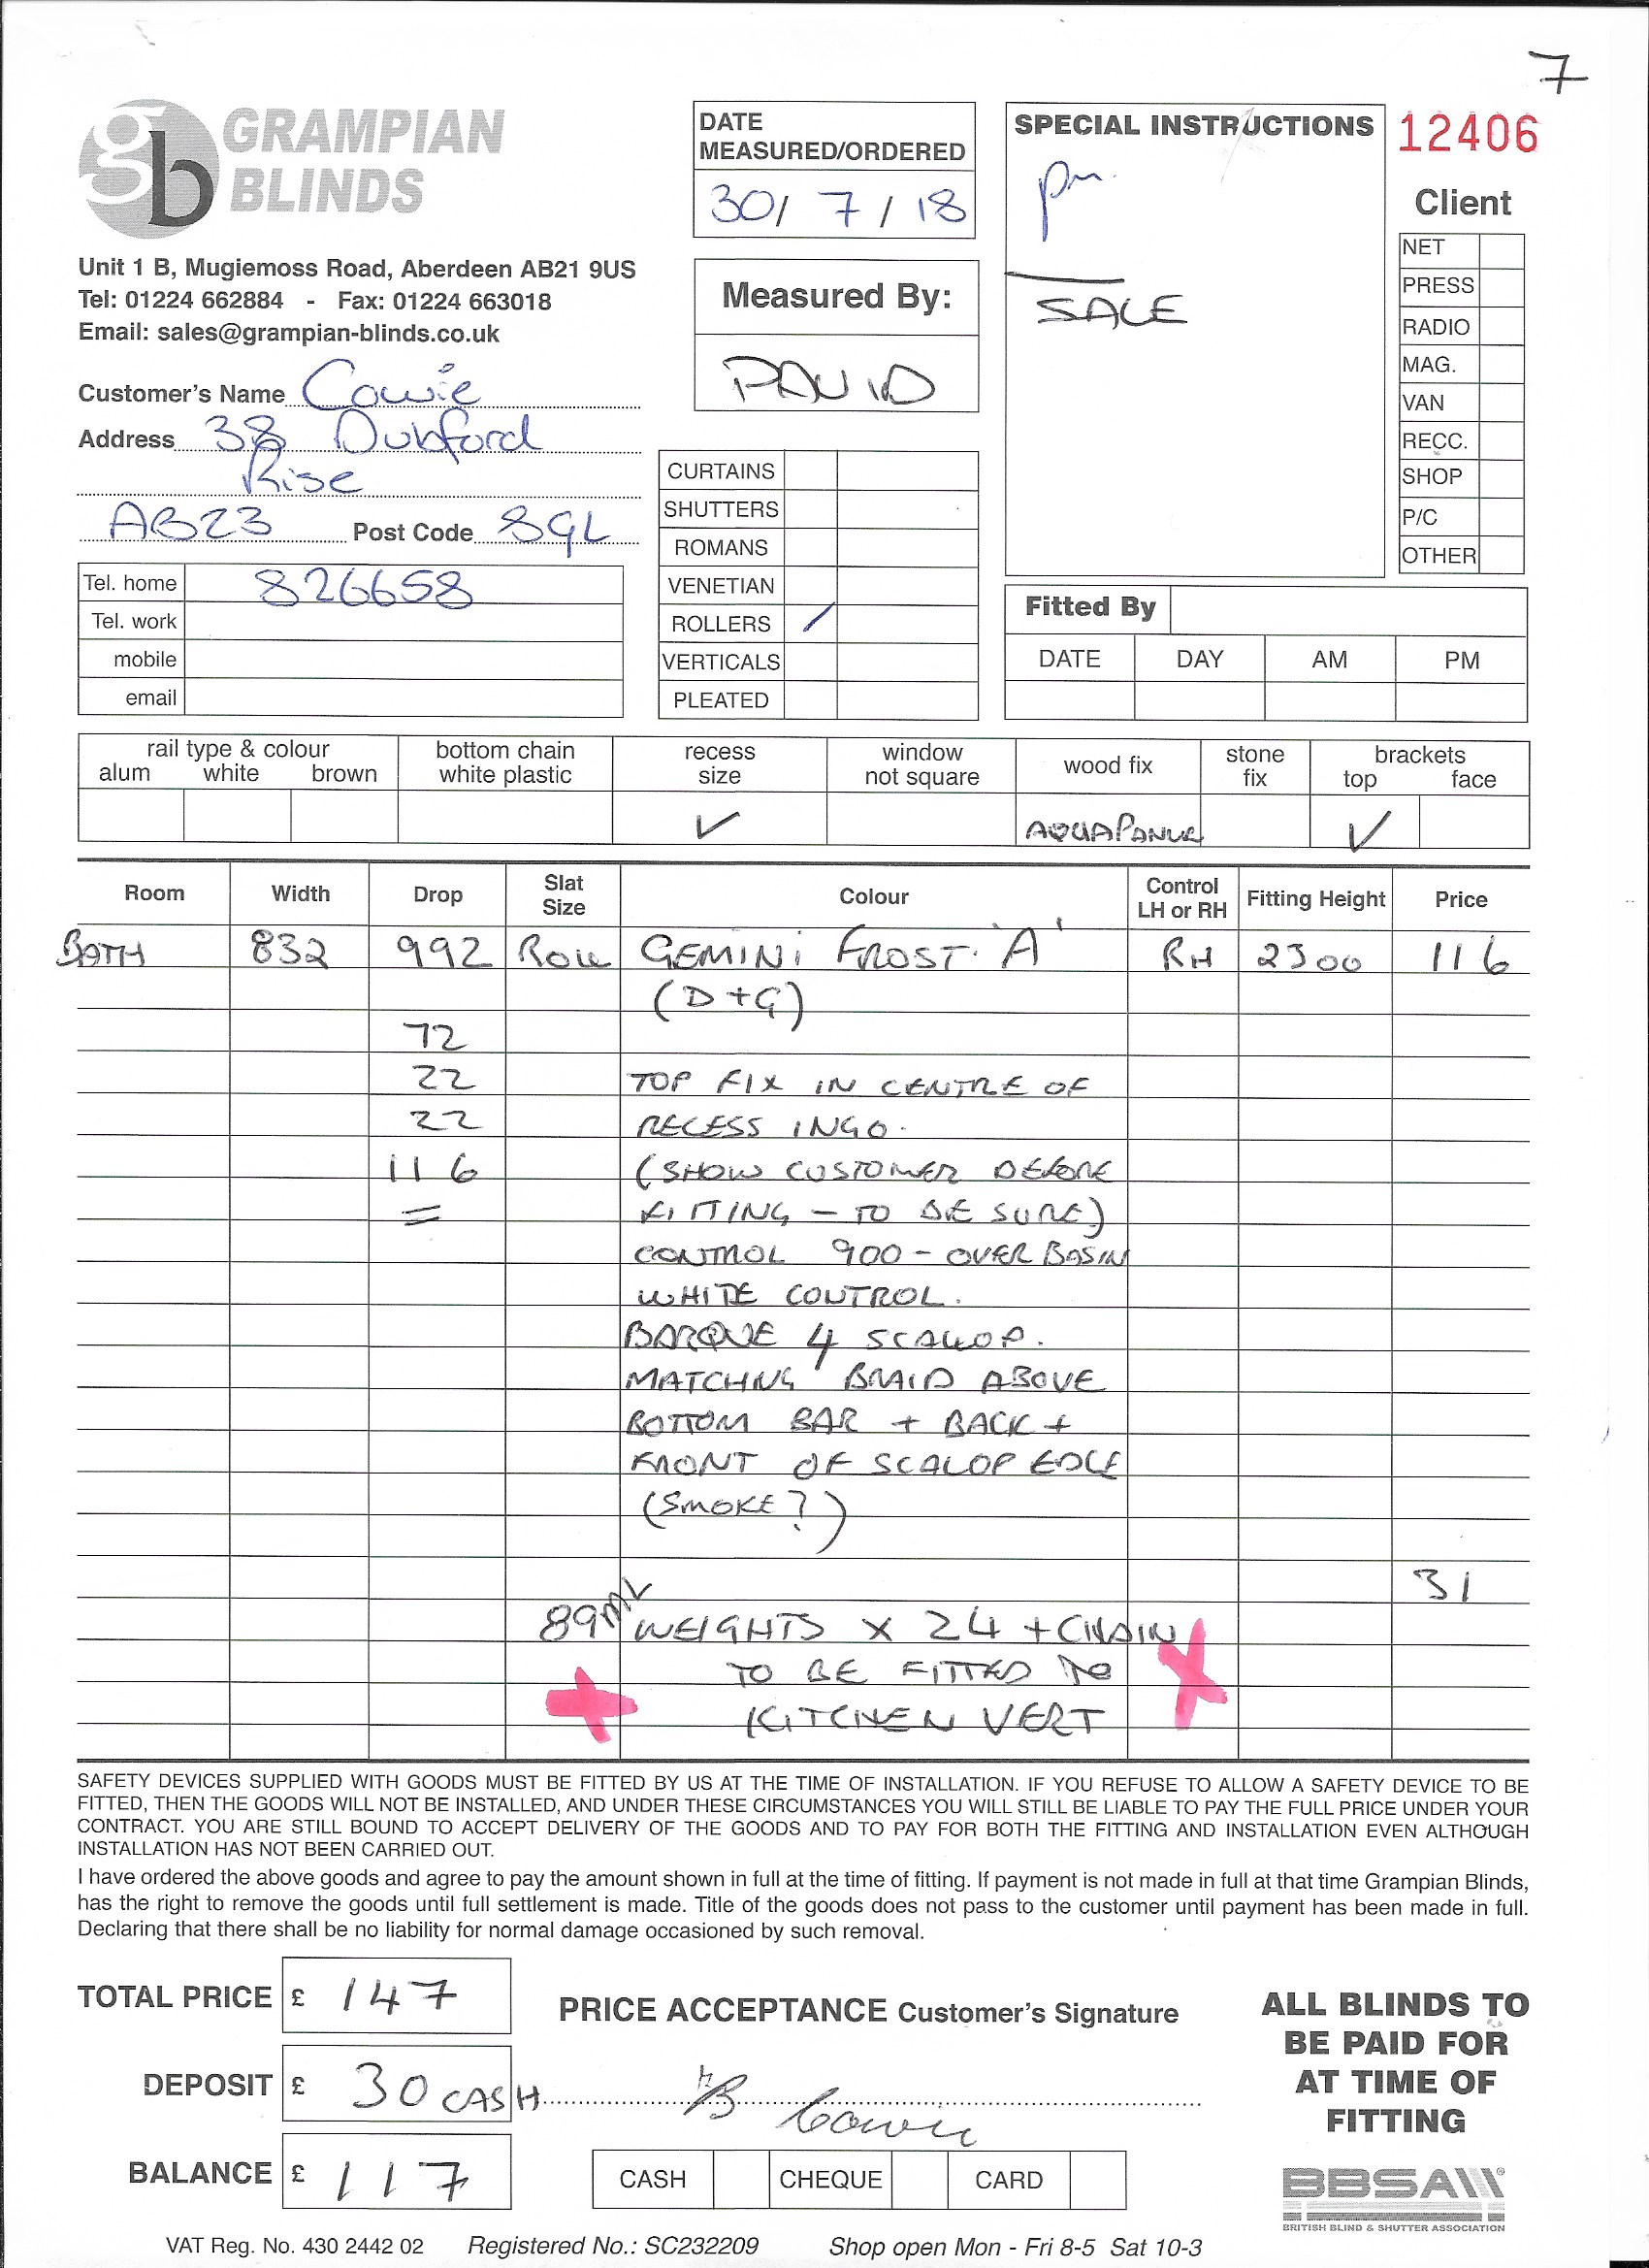 7
gb GRAMPIAN
BLINDS
Unit 1 B, Mugiemoss Road, Aberdeen AB21 9US
Tel: 01224 662884 - Fax: 01224 663018
Email: sales@grampian-blinds.co.uk
Customer's Name Cowie
Address 38 Dubford
Rise
AB23 Post Code 8GL
Tel. home 826658
Tel. work
mobile
email
DATE
MEASURED/ORDERED
30/ 7 / 18
Measured By:
DAVID
CURTAINS
SHUTTERS
ROMANS
VENETIAN
ROLLERS /
VERTICALS
PLEATED
SPECIAL INSTRUCTIONS
pm.
SALE
12406
Client
NET
PRESS
RADIO
MAG.
VAN
RECC.
SHOP
P/C
OTHER
Fitted By
DATE DAY AM PM
rail type & colour bottom chain recess window wood fix stone brackets
alum white brown white plastic size not square fix top face
✓ AQUAPANEL ✓
Room Width Drop Slat Size Colour Control LH or RH Fitting Height Price
BATH 832 992 Roll GEMINI FROST. 'A' RH 2300 116
(D+G)
72
22 TOP FIX IN CENTRE OF
22 RECESS INGO.
116 (SHOW CUSTOMER BEFORE
= FITTING - TO BE SURE)
CONTROL 900 - OVER BASIN
WHITE CONTROL.
BARQUE 4 SCALLOP.
MATCHNG BRAID ABOVE
BOTTOM BAR + BACK +
FRONT OF SCALOP EDGE
(SMOKE?)
31
89ML WEIGHTS x 24 + CHAIN
TO BE FITTED TO
KITCHEN VERT
SAFETY DEVICES SUPPLIED WITH GOODS MUST BE FITTED BY US AT THE TIME OF INSTALLATION. IF YOU REFUSE TO ALLOW A SAFETY DEVICE TO BE
FITTED, THEN THE GOODS WILL NOT BE INSTALLED, AND UNDER THESE CIRCUMSTANCES YOU WILL STILL BE LIABLE TO PAY THE FULL PRICE UNDER YOUR
CONTRACT. YOU ARE STILL BOUND TO ACCEPT DELIVERY OF THE GOODS AND TO PAY FOR BOTH THE FITTING AND INSTALLATION EVEN ALTHOUGH
INSTALLATION HAS NOT BEEN CARRIED OUT.
I have ordered the above goods and agree to pay the amount shown in full at the time of fitting. If payment is not made in full at that time Grampian Blinds,
has the right to remove the goods until full settlement is made. Title of the goods does not pass to the customer until payment has been made in full.
Declaring that there shall be no liability for normal damage occasioned by such removal.
TOTAL PRICE £ 147
DEPOSIT £ 30 CASH
BALANCE £ 117
PRICE ACCEPTANCE Customer's Signature
B Cowie
CASH CHEQUE CARD
ALL BLINDS TO
BE PAID FOR
AT TIME OF
FITTING
BBSA
BRITISH BLIND & SHUTTER ASSOCIATION
VAT Reg. No. 430 2442 02 Registered No.: SC232209 Shop open Mon - Fri 8-5 Sat 10-3